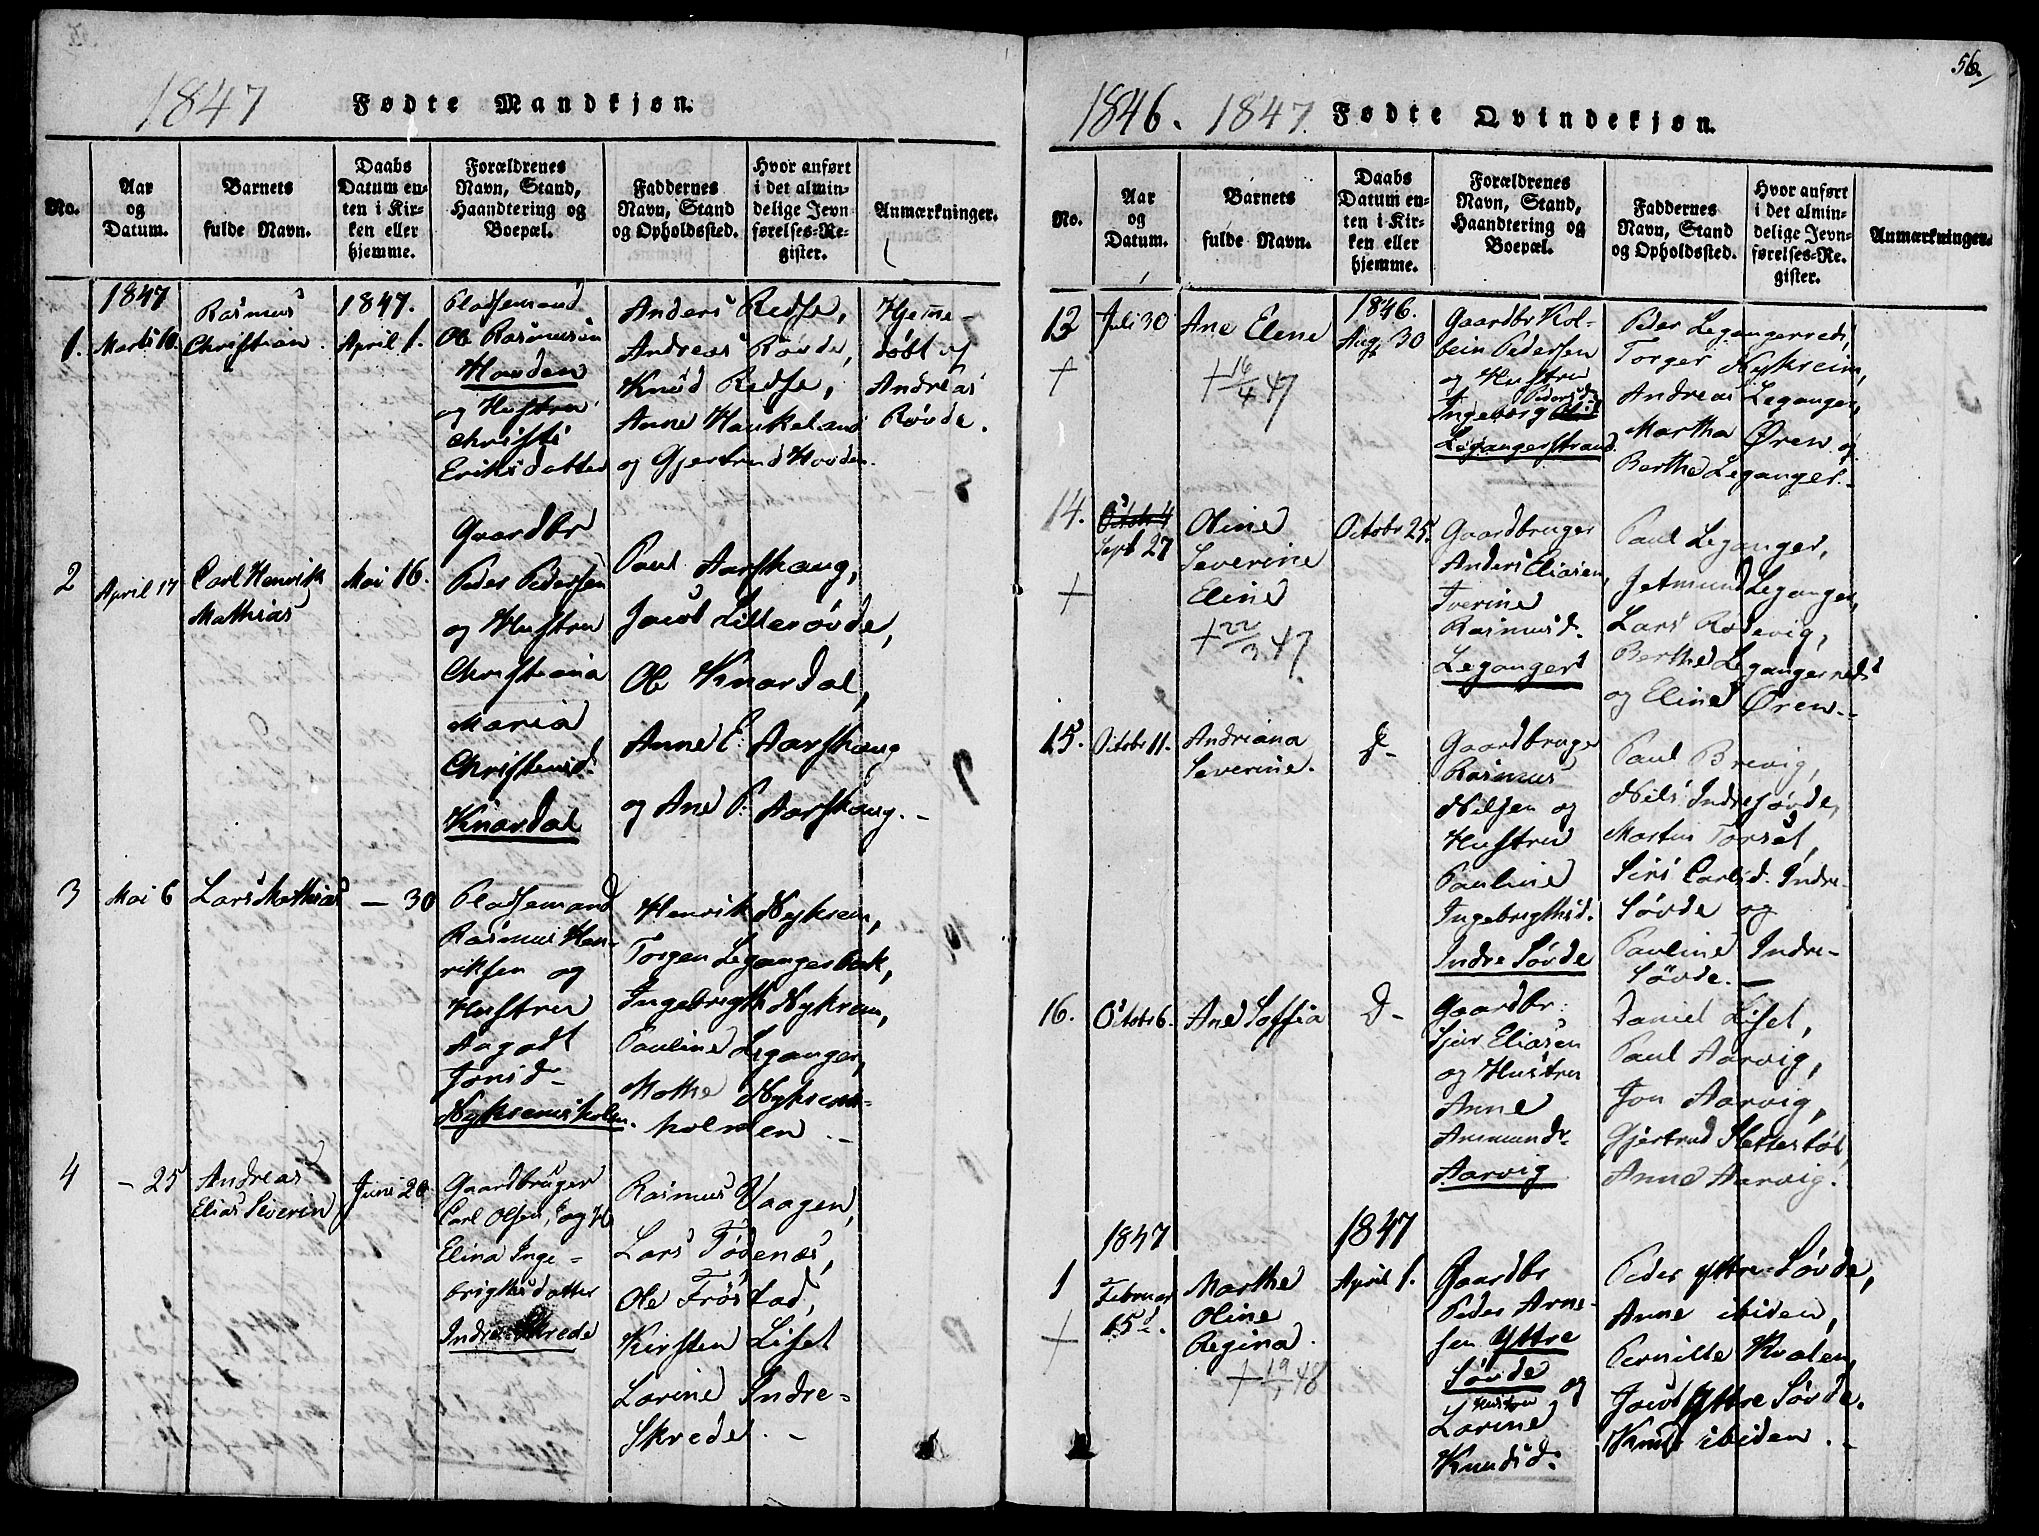 1847 Fødte Mandkjøn.
No.
Aar
og
Datum.
Barnets
fulde Navn.
Daabs
Datum en-
ten i Kir-
ken eller
hjemme.
Forældrenes
Navn, Stand,
Haandtering og
Boepæl.
Faddernes
Navn, Stand
og Opholdssted.
Hvor anført
i det almin-
delige Jevn
førelses-Re-
gister.
Anmærkninger.
1.
1847
Marts 10.
Rasmus
Christian.
1847.
April 1.
Pladsemand
Ole Rasmusen
Hovden
og Hustru
Christi
Eriksdatter
Anders Redse,
Andreas Røvde,
Knud Redse,
Anne Haukeland
og Gjertrud Hovden.
Hjemme-
døbt af
Andreas
Røvde.
2
April 17
Carl Henrik
Mathias
Mai 16.
Gaardbr
Peder Pedersen
og Hustru
Christiana
Maria
Christensd.
Knardal
Paul Aarskaug,
Jacob Lillerøvde,
Ole Knardal,
Anne E. Aarskaug
og Ane P. Aarskaug.-
3
Mai 6
Lars Mathias
- 30
Pladsemand
Rasmus Hen-
riksen og
Hustru
Aagodt
Jonsd-
Nykremsholm.
Henrik Nykrem,
Torger Leganger bak,
Ingebrigth Nykrem,
Pauline Leganger,
Mathe Nykrems-
holmen.-
4
- 25
Andreas
Elias Severin
Juni 20
Gaardbruger
Carl Olsen, og H
Elina Inge-
brigtsdatter
Indre Skrede
Rasmus Vaagen,
Lars Tødenæs,
Ole Frøstad,
Kirsten Liset
Larine Indre-
Skrede.-
56.
1846. 1847. Fødte Qvindekjøn.
No.
Aar
og
Datum.
Barnets
fulde Navn.
Daabs
Datum en-
ten i Kir-
ken eller
hjemme.
Forældrenes
Navn, Stand,
Haandtering og
Boepæl.
Faddernes
Navn, Stand
og Opholdssted.
Hvor anført
i det almin-
delige Jevn-
førelses-Re-
gister.
Anmærkninger.
13
+
Juli 30
Ane Elene
+ 16/4 47
1846.
Aug 30
Gaardbr Kol-
bein Pedersen
og Hustru
Pedersd
Ingeborg
Legangerstrand.
Peder Legangerreds,
Torger Nykreim,
Andreas Leganger,
Martha Øren og
Berthe Leganger.-
14.
+
Octobr 4
Sept 27
Oline
Severine
Eline
+ 22/3 47.
Octobr 25.
Gaardbruger
Anders Eliasen,
Iverine
Rasmusd.
Leganger
Paul Leganger,
Jetmund Leganger,
Lars Rodevig,
Berthe Legangerreds
og Eline Øren.-
15.
Octobr 11.
Andriana
Severine.
D-
Gaardbruger
Rasmus
Nilsen og
Hustru
Pauline
Ingebrigthsd.
Indre Søvde
Paul Brevig,
Nils Indresøvde,
Martin Torset,
Siri Carlsd. Indre-
Søvde og
Pauline Indre-
Søvde.-
16.
Octobr 6.
Ane Soffia
D-
Gaardbr.
Sjur Eliasen
og Hustru
Anne
Ammundr-
Aarvig
Daniel Liset,
Paul Aarvig,
Jon Aarvig,
Gjertrud Slettestøl,
Anne Aarvig.
1
+
1847
Februar
15d.
Marthe
Oline
Regina.
+ 19/1 48
1847
April 1.
Gaardbr
Peder Arne-
sen Yttre
Søvde og
Hustru
Larine
Knudsd.
Peder Yttre-Søvde,
Anne ibiden,
Pernille Kvalen,
Jacob Yttre Søvde.
Knud ibiden.-